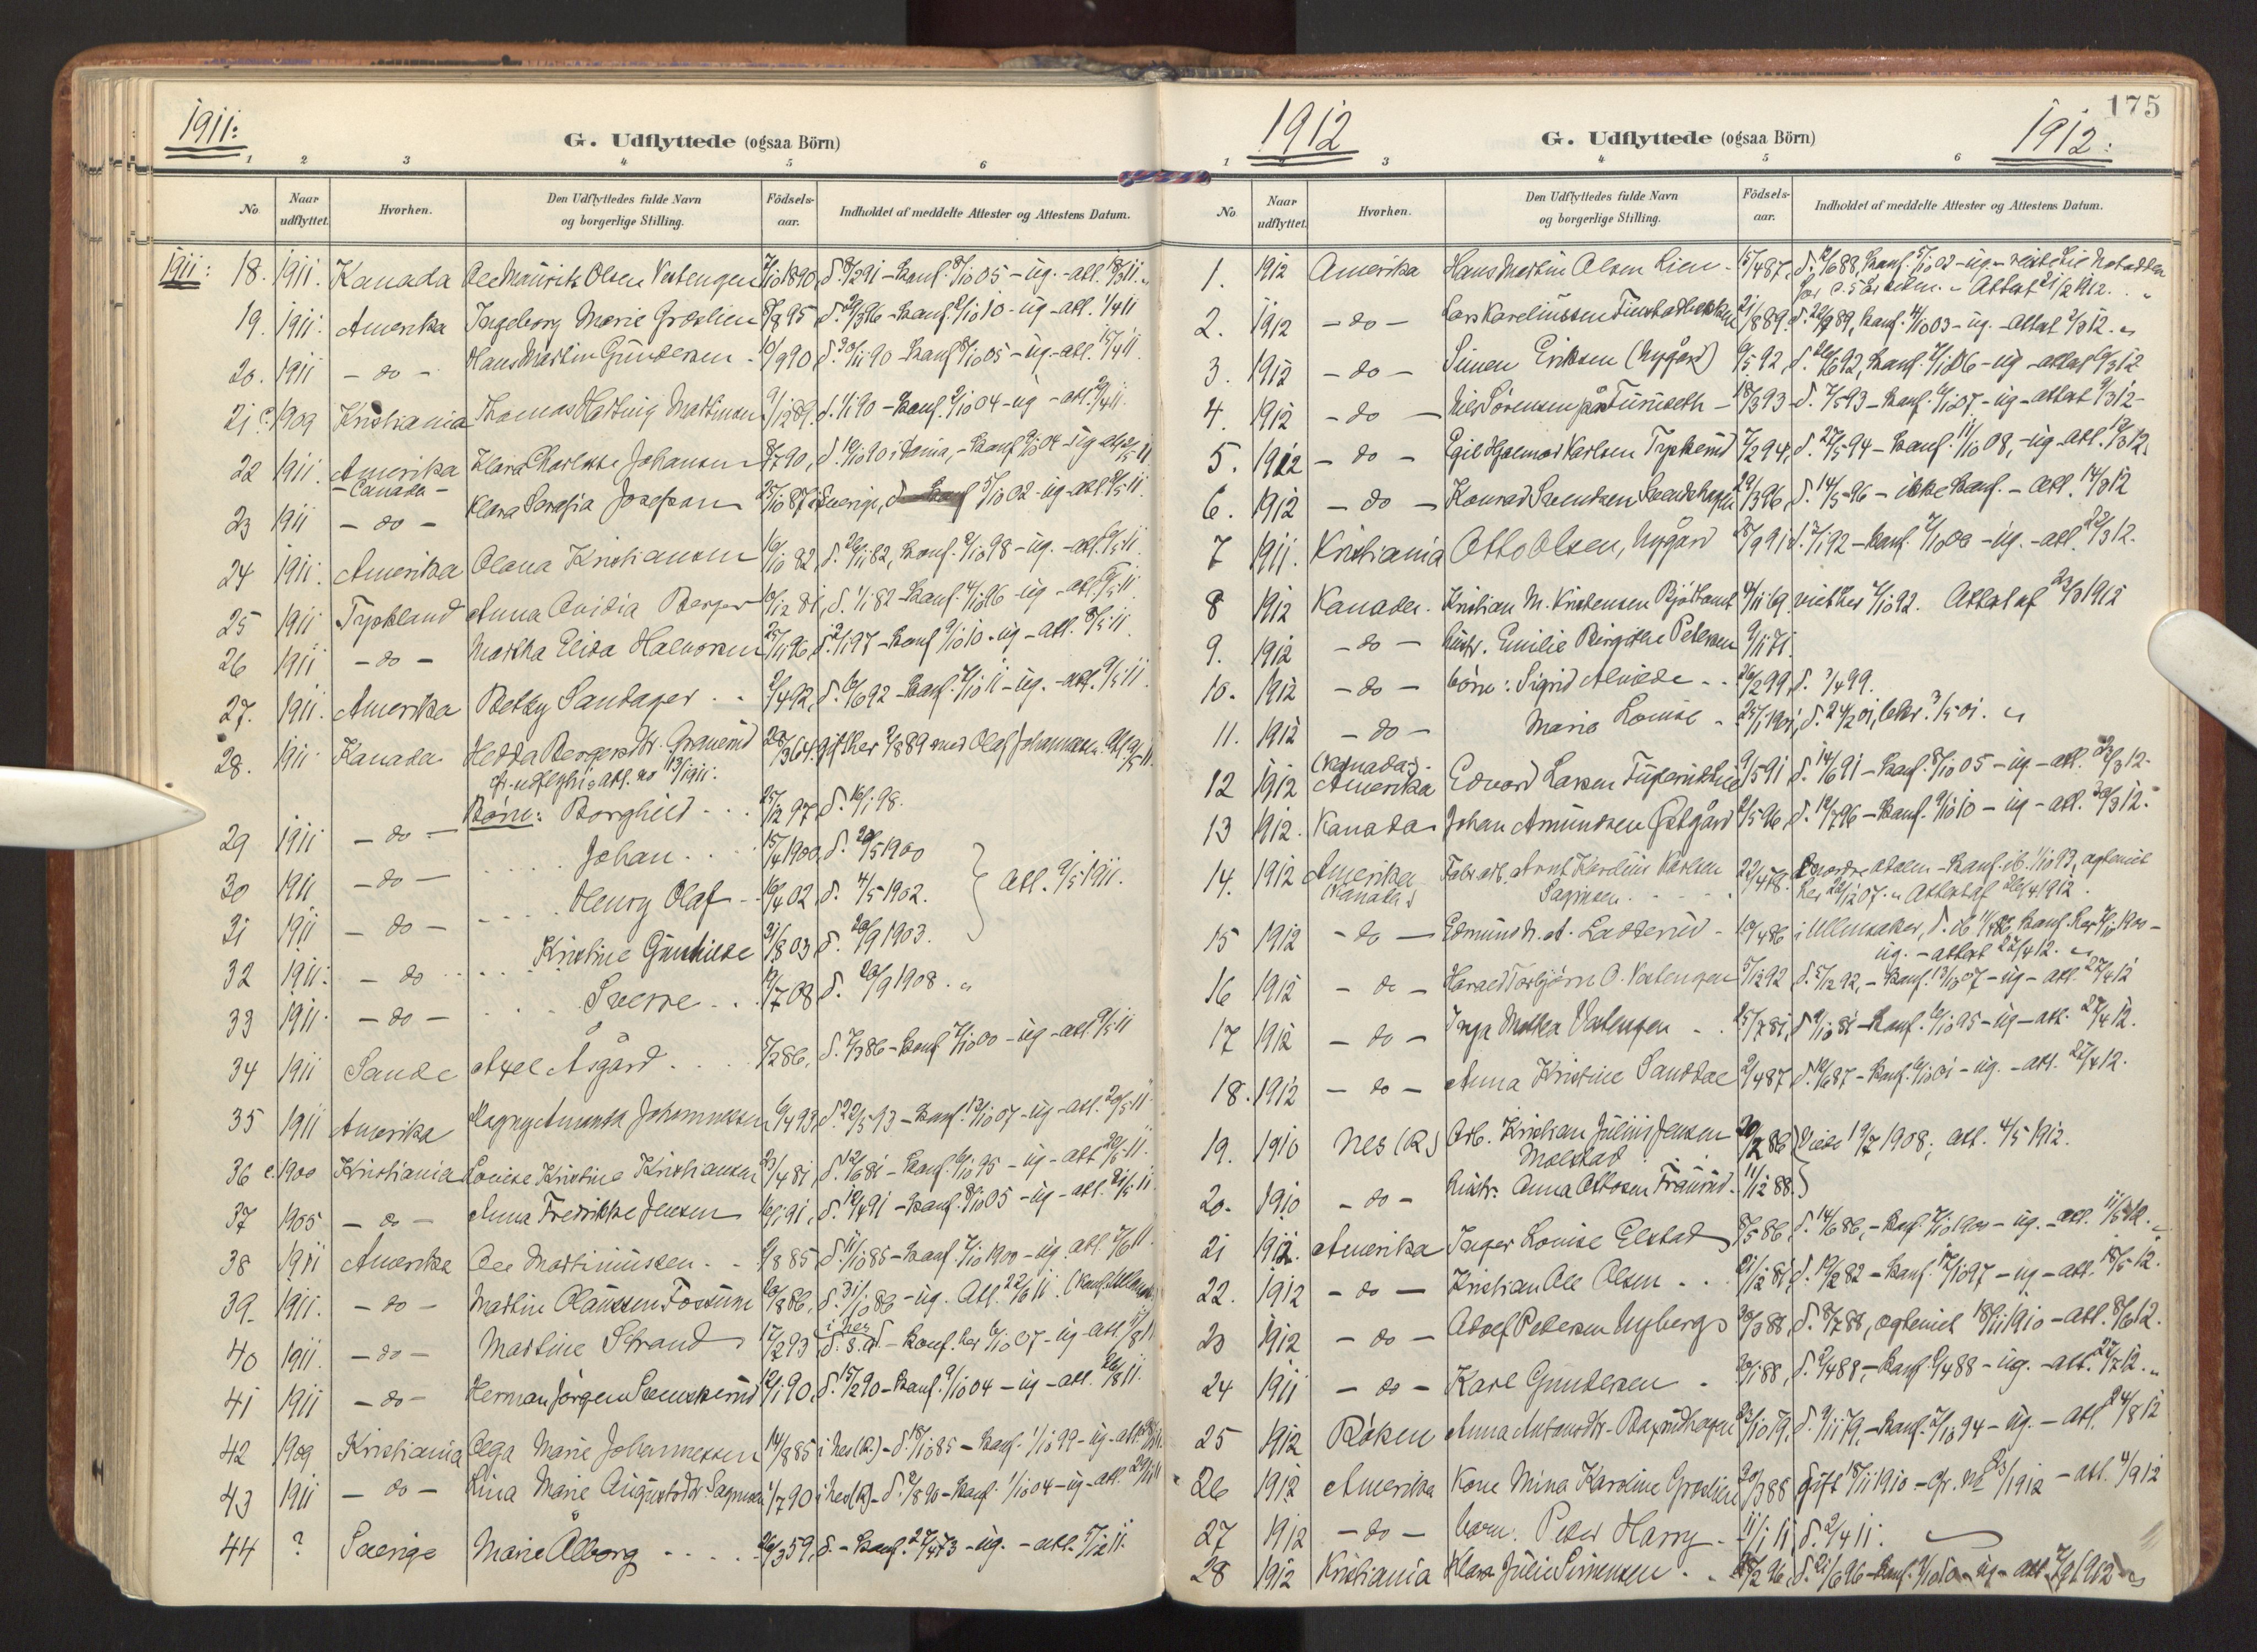 1911:
G. Udflyttede (ogsaa Börn)
1 2 3 4 5 6
No. Naar udflyttet. Hvorhen. Den Udflyttedes fulde Navn og borgerlige Stilling. Födsels-aar. Indholdet af meddelte Attester og Attestens Datum.
1911: 18. 1911. Kanada Ole Maurits Olsen Vestengen 7/10 1890, d. 8/2 91 - konf. 8/10 05 - ug. - att.
19. 1911. Amerika Ingeborg Marie Groslien 95, d. 96 - konf. 2/10 10 - ug - att. 1/4 11
20. 1911 - do - Hans Martin Gundersen - 90 d. 90 - konf. 8/10 05 - ug. - att. 15/4 11.
21 1909 Kristiania Thomas Hartvig Martinsen 9/12 89, d. 1/1 90 - konf. 2/10 04 - ug - att. 11.
22 1911. Amerika Klara Charlotte Johansen 90, konf. 04 - ug
- Canada -
23 1911 - do - Klara Serafia Josefson 25/10 87 i Sverige, 5/10 02 - ug - att. 11.
24 1911. Amerika Olava Kristiansen 16/10 82, d. 82, konf. 2/10 98 - ug. - att. 11.
25 1911 Tyskland Anna Ovidia Berger 12 81, d. 1/1 82 - konf. 4/10 96 - ug - att. 11.
26 1911 - do - Martha Elisa Halvorsen 25/11 96, d. 97 - konf. 9/10 10 - ug - att. 8/5 11.
27. 1911. Amerika Betzy Sandager . . 2/4 92, d. 6/6 92 - konf. 11 - ug. - att. 9/5 11.
28. 1911. Kanada Hedda Bergersdtr. Granerud 28/3 64. gift her 89 med Olaf Johannesen. att. 9/5 11.
13/1 1911.
Börn: Borghild . . . 25/12 97 d. 16/1 98.
29 1911 - do -
30 1911 - do - Johan . . . 15/4 1900, d. 20/5 1900
31 1911 - do - Henry Olaf - 16/4 02, d. 4/5 1902. att. 9/5 1911.
32 1911. - do Kristine Gunhilde 31/8 03 d. 20/9 1903.
33 1911. - do - Sverre . . 19/7 08 d. 20/9 1908.
34 1911 Sande Axel Åsgård . . . 7/2 86, d. 7/3 86 - konf. 7/10 00 - ug - att. 9/5 11
35 1911 Amerika Magny Amanda Johannessen 6/4 93, d. 22/5 93 - konf. 13/10 07 - ug - att. 20/5 11.
36 c. 1900 Kristiania Louise Kristine Kristiansen 23/4 81, d. 12/6 81 - konf. 6/10 95 - ug - att. 20/5 11.
37 1905 - do - Anna Fredrikke Jensen 16/1 91, d. 12/4 91 - konf. 8/10 05 - ug - att. 21/5 11.
38 1911 Amerika Ole Martiniussen . . 9/8 85, d. 11/10 85 - konf. 7/10 1900 - ug. att. 7/6 11.
39. 1911. - do - Martin Claussen Fossum 20/8 86, d. 31/10 86 - ug. att. 22/6 11.
40 1911. - do - Martine Strand 17/2 93 i Nes d. s. å. - konf. her 6/10 07 - ug - att. 11
41 1911 - do - Herman Jörgen Svenskerud 12/1 90, d. 15/2 90 - konf. 9/10 04 - ug - att. 26/8 11.
42 1909 Kristiania Olga Marie Johannessen 14/8 85 i Nes (R.) - d. 18/10 85 - konf. 1/10 99 - ug - att.
43 1911 - do - Lina Marie Augustsdtr. Sagmoen 1/7 90 i Nes (R) - d. 3/8 90 - konf. 1/10 04 - ug - att.
44 ? Sverige Marie Ålborg - - - 26/3 59, d. - konf. 27/4 73 - ug. - att. 5/12 11.
175
1912 1912:
G. Udflyttede (ogsaa Börn)
1 2 3 4 5 6
No Naar udflyttet. Hvorhen. Den Udflyttedes fulde Navn og borgerlige Stilling. Födsels-aar. Indholdet af meddelte Attester og Attestens Datum.
1. 1912 Amerika Hans Martin Olsen Lien - 15/4 87, d. 12/6 88, konf. 5/10 02 - ug - reiste til Notodden
for c. 5 år siden. - Attest 21/2 1912.
2. 1912 - do - Lars Kareliussen 21/8 89. d. 22/9 89, konf. 4/10 03 - ug. - attest 12.
3. 1912 - do - Simen Eriksen (Nygård) 9/5 92, d. 26/6 92, konf. 06 - ug - attest 12
4. 1912 - do - Nils Sörensen på Furuseth - 18/3 93 - d. 7/5 93 - konf. 6/10 07. - ug - attest 9/3 12 -
5. 1912 - do - Egil Hjalmar Karlsen Tryterud 7/2 94, d. 27/5 94 - konf. 11/10 08, - ug - att. 12.
6. 1912 - do - Konrad Svendsen 29/3 96, d. 14/5 96 - ikke konf. - att. 14/3 12
7 1911. Kristiania Otto Olsen, Nygård 28/9 91 d. 1/1 92 - konf. 7/10 00 - ug. - att. 22/3 12.
8 1912 Kanada. Kristian M. Kristensen 11 69. viet her 4/10 92. Attest af 23/3 1912
9. 1912 - do - hustr. Emilie Birgitte Petersen 9/11 71.
10. 1912 - do - börn: Sigrid Alvilde - - 26/2 99, d. 3/4 99.
11. 1912 - do - Marie Louise - 25/1 1901, d. 24/2 01, bekr. 3/5 01.
12 1912 (Kanada) Amerika Edvard Larsen 9/5 91 d. 14/6 91 - konf. 8/10 05 - ug - att. 12.
13 1912. Kanada Johan Amundsen Östgård 2/5 96, d. 12/7 96 - konf. 9/10 10 - ug - att. 12.
14. 1912 Amerika (Kanada) Fabr.arb. Arnt Karelius Karlsen Sagmoen . . . 22/4 78.
her 26/12 07. - Attest af 26/4 1912.
15 1912 - do - Edmund A. Ladderud - 10/4 86 i Ullensaker, d. ib. 86, konf. her 7/10 1900 -
ug. - attest 22/4 12.
16 1912 - do - Harald Torbjörn O. Vestengen 5/1 92 d. 5/12 92, - konf. 13/10 07 - ug - att. 27/4 12
17 1912 - do - Inga Mathea Vestengen . . 25/7 81, d. 9/10 81 - konf. 6/10 95 - ug - att. 27/4 12.
18. 1912 - do - Anna Kristine Sanddal 2/4 87, d. 12/6 87 - konf. 6/10 01 - ug. - att. 27/4 12.
19. 1910 Nes (R) Arb. Kristian Julius Jensen Molstad . . 20/2 86 Viede 19/7 1908, att. 4/5 1912.
20. 1910 - do - hustr. Anna Ottosen Fraurud. 11/12 88.
21 1912. Amerika Inger Louise Elstad 8/5 86, d. 14/6 86, - konf. 7/10 1900 - ug. - att. 11/5 12.
22. 1912 - do - Kristian Ole Olsen . . . 21/12 81, d. 19/2 82 - konf. 17/10 97 - ug - att. 18/5 12.
23 1912 - do - Adolf Petersen Nybergs 30/3 88, d. 8/7 88, ægteviet 18/11 1910 - att. 8/6 12.
24 1911 - do - Karl Gundersen . 20/1 88, d. 2/4 88, - konf. 2/4 88 - ug. - att. 27/7 12.
25 1912 Röken Anna Antonsdtr. 23/10 79, d. 9/11 79, - konf. 7/10 94 - ug. - att. 24/8 12
26 1912 Amerika Kone Mina Karoline Groslien 30/3 88 gift 18/11 1910 - cfr. No 23/1912 - att. 4/9 12
27 1912 - do - barn. Peder Harry - 11/1 11 d. 2/4 11.
28 1912 Kristiania Klara Julie Simensen . . 2 96, d. 21/6 96 - konf. 9/10 10 - ug - att. 7/9 1912